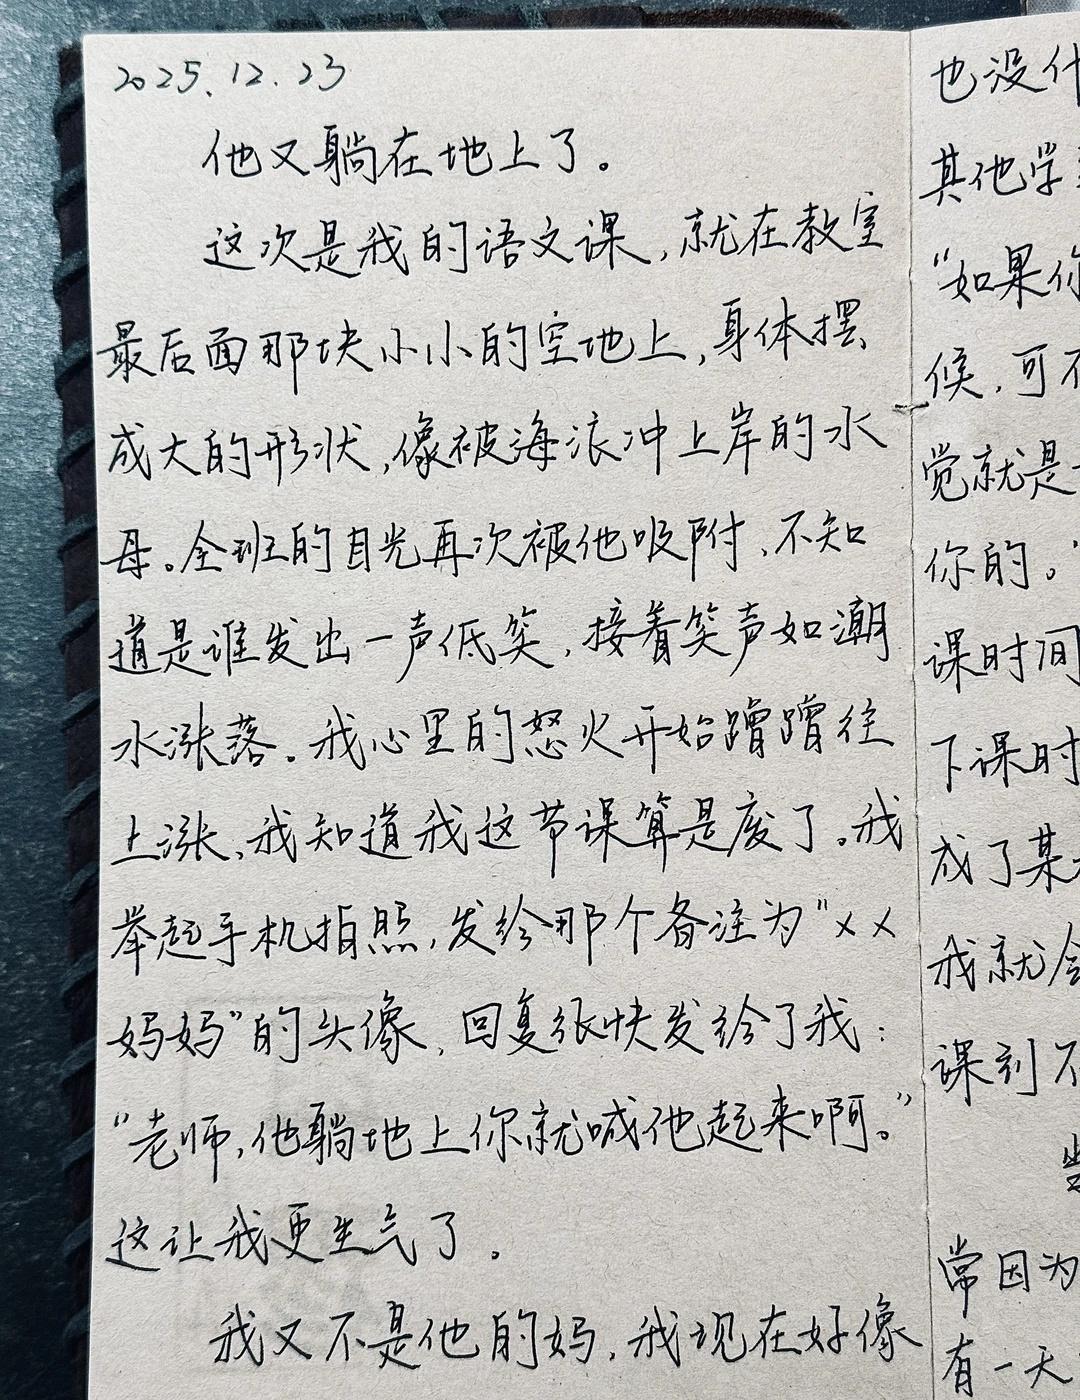 2025.12.23
他又躺在地上了。
这次是我的语文课,就在教室
最后面那块小小的空地上,身体摆
成大的形状,像被海浪冲上岸的水
母。全班的目光再次被他吸附,不知
道是谁发出一声低笑,接着笑声如潮
水涨落。我心里的怒火开始蹭蹭往
上涨,我知道我这节课算是废了。我
举起手机拍照,发给那个备注为“××
妈妈”的头像,回复很快发给了我:
“老师,他躺地上你就喊他起来啊。”
这让我更生气了。
我又不是他的妈,我现在好像
也没什
其他学
“如果你
候,可不
觉就是
你的。
课时间
下课时
成了某
我就会
课刻不
常因为
有一天